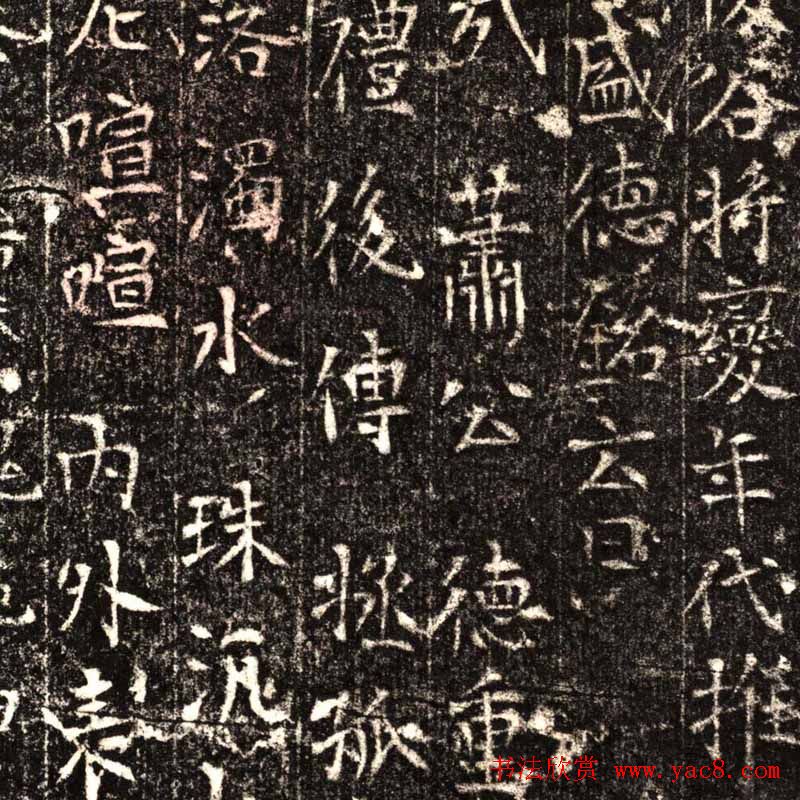 谷将變年代推
盛德銘云曰
蕭公 德重
禮後傳 拯孤
落濁水 珠沉
喧喧 內外素
书法欣赏 www.yac8.com